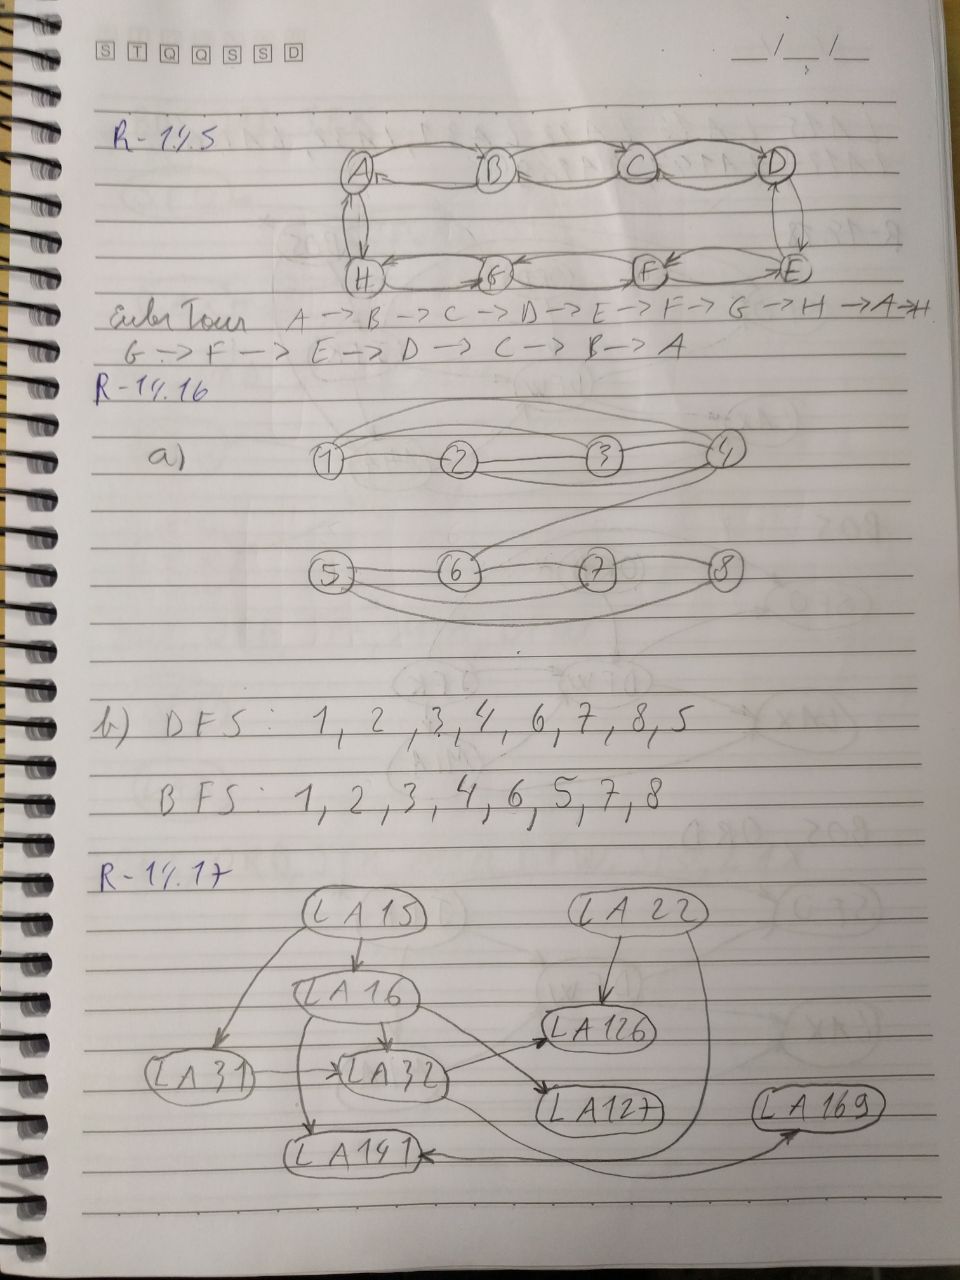 S T Q Q S S D
__/__/__
R-14.5
A B C D
H G F E
Euler Tour A -> B -> C -> D -> E -> F -> G -> H -> A -> H
G -> F -> E -> D -> C -> B -> A
R-14.16
a) 1 2 3 4
5 6 7 8
b) DFS: 1, 2, 3, 4, 6, 7, 8, 5
BFS: 1, 2, 3, 4, 6, 5, 7, 8
R-14.17
LA15 LA22
LA16
LA126
LA31 LA32
LA127 LA169
LA141